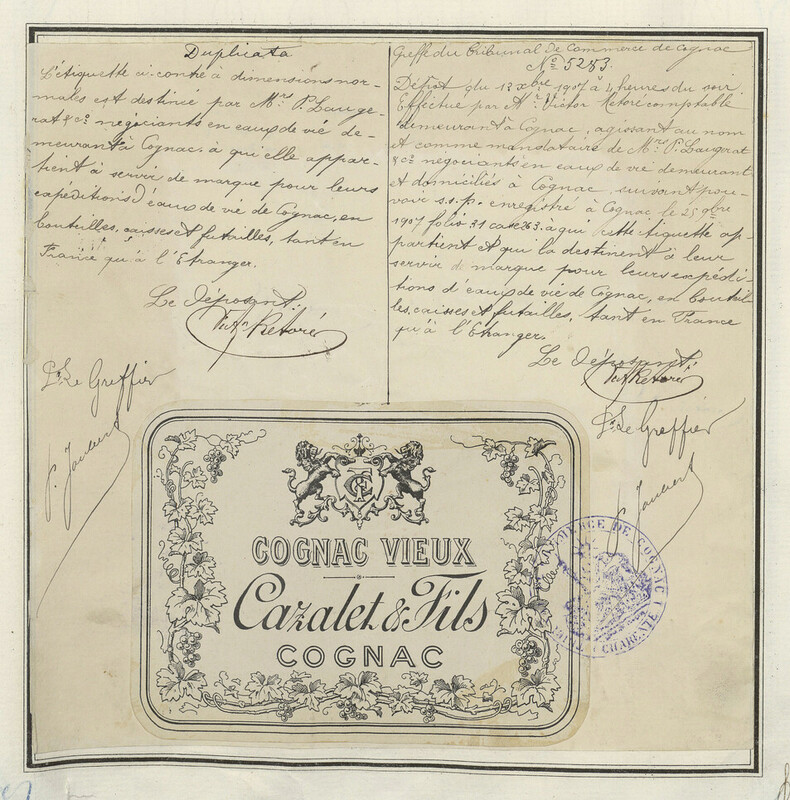 Duplicata
L'étiquette ci-contre à dimensions nor-
males est destinée par Mrs P. Lauge-
rat & Co négociants en eaux de vie de-
meurant à Cognac, à qui elle appar-
tient à servir de marque pour leurs
expéditions d'eaux de vie de Cognac, en
bouteilles, caisses et futailles, tant en
France qu'à l'Etranger.
Le Déposant:
Vict. Retoré
Pr Le Greffier
P. Joubert
Greffe du Tribunal De Commerce de Cognac
No 5283.
Dépôt du 12 xbre 1907 à 4 heures du soir
Effectué par Mr Victor Retoré comptable
demeurant à Cognac, agissant au nom
et comme mandataire de Mrs P. Laugerat
& Co négociants en eaux de vie demeurant
et domiciliés à Cognac, suivant pou-
voir s.s.p. enregistré à Cognac le 25 9bre
1907 folio 31 case 363, à qui cette étiquette ap-
partient et qui la destinent à leur
servir de marque pour leurs expédi-
tions d'eaux de vie de Cognac, en bouteil-
les, caisses et futailles, tant en France
qu'à l'Etranger.
Le Déposant:
Vict. Retoré
Pr Le Greffier
P. Joubert
COGNAC VIEUX
Cazalet & Fils
COGNAC
COMMERCE DE COGNAC
CHARENTE